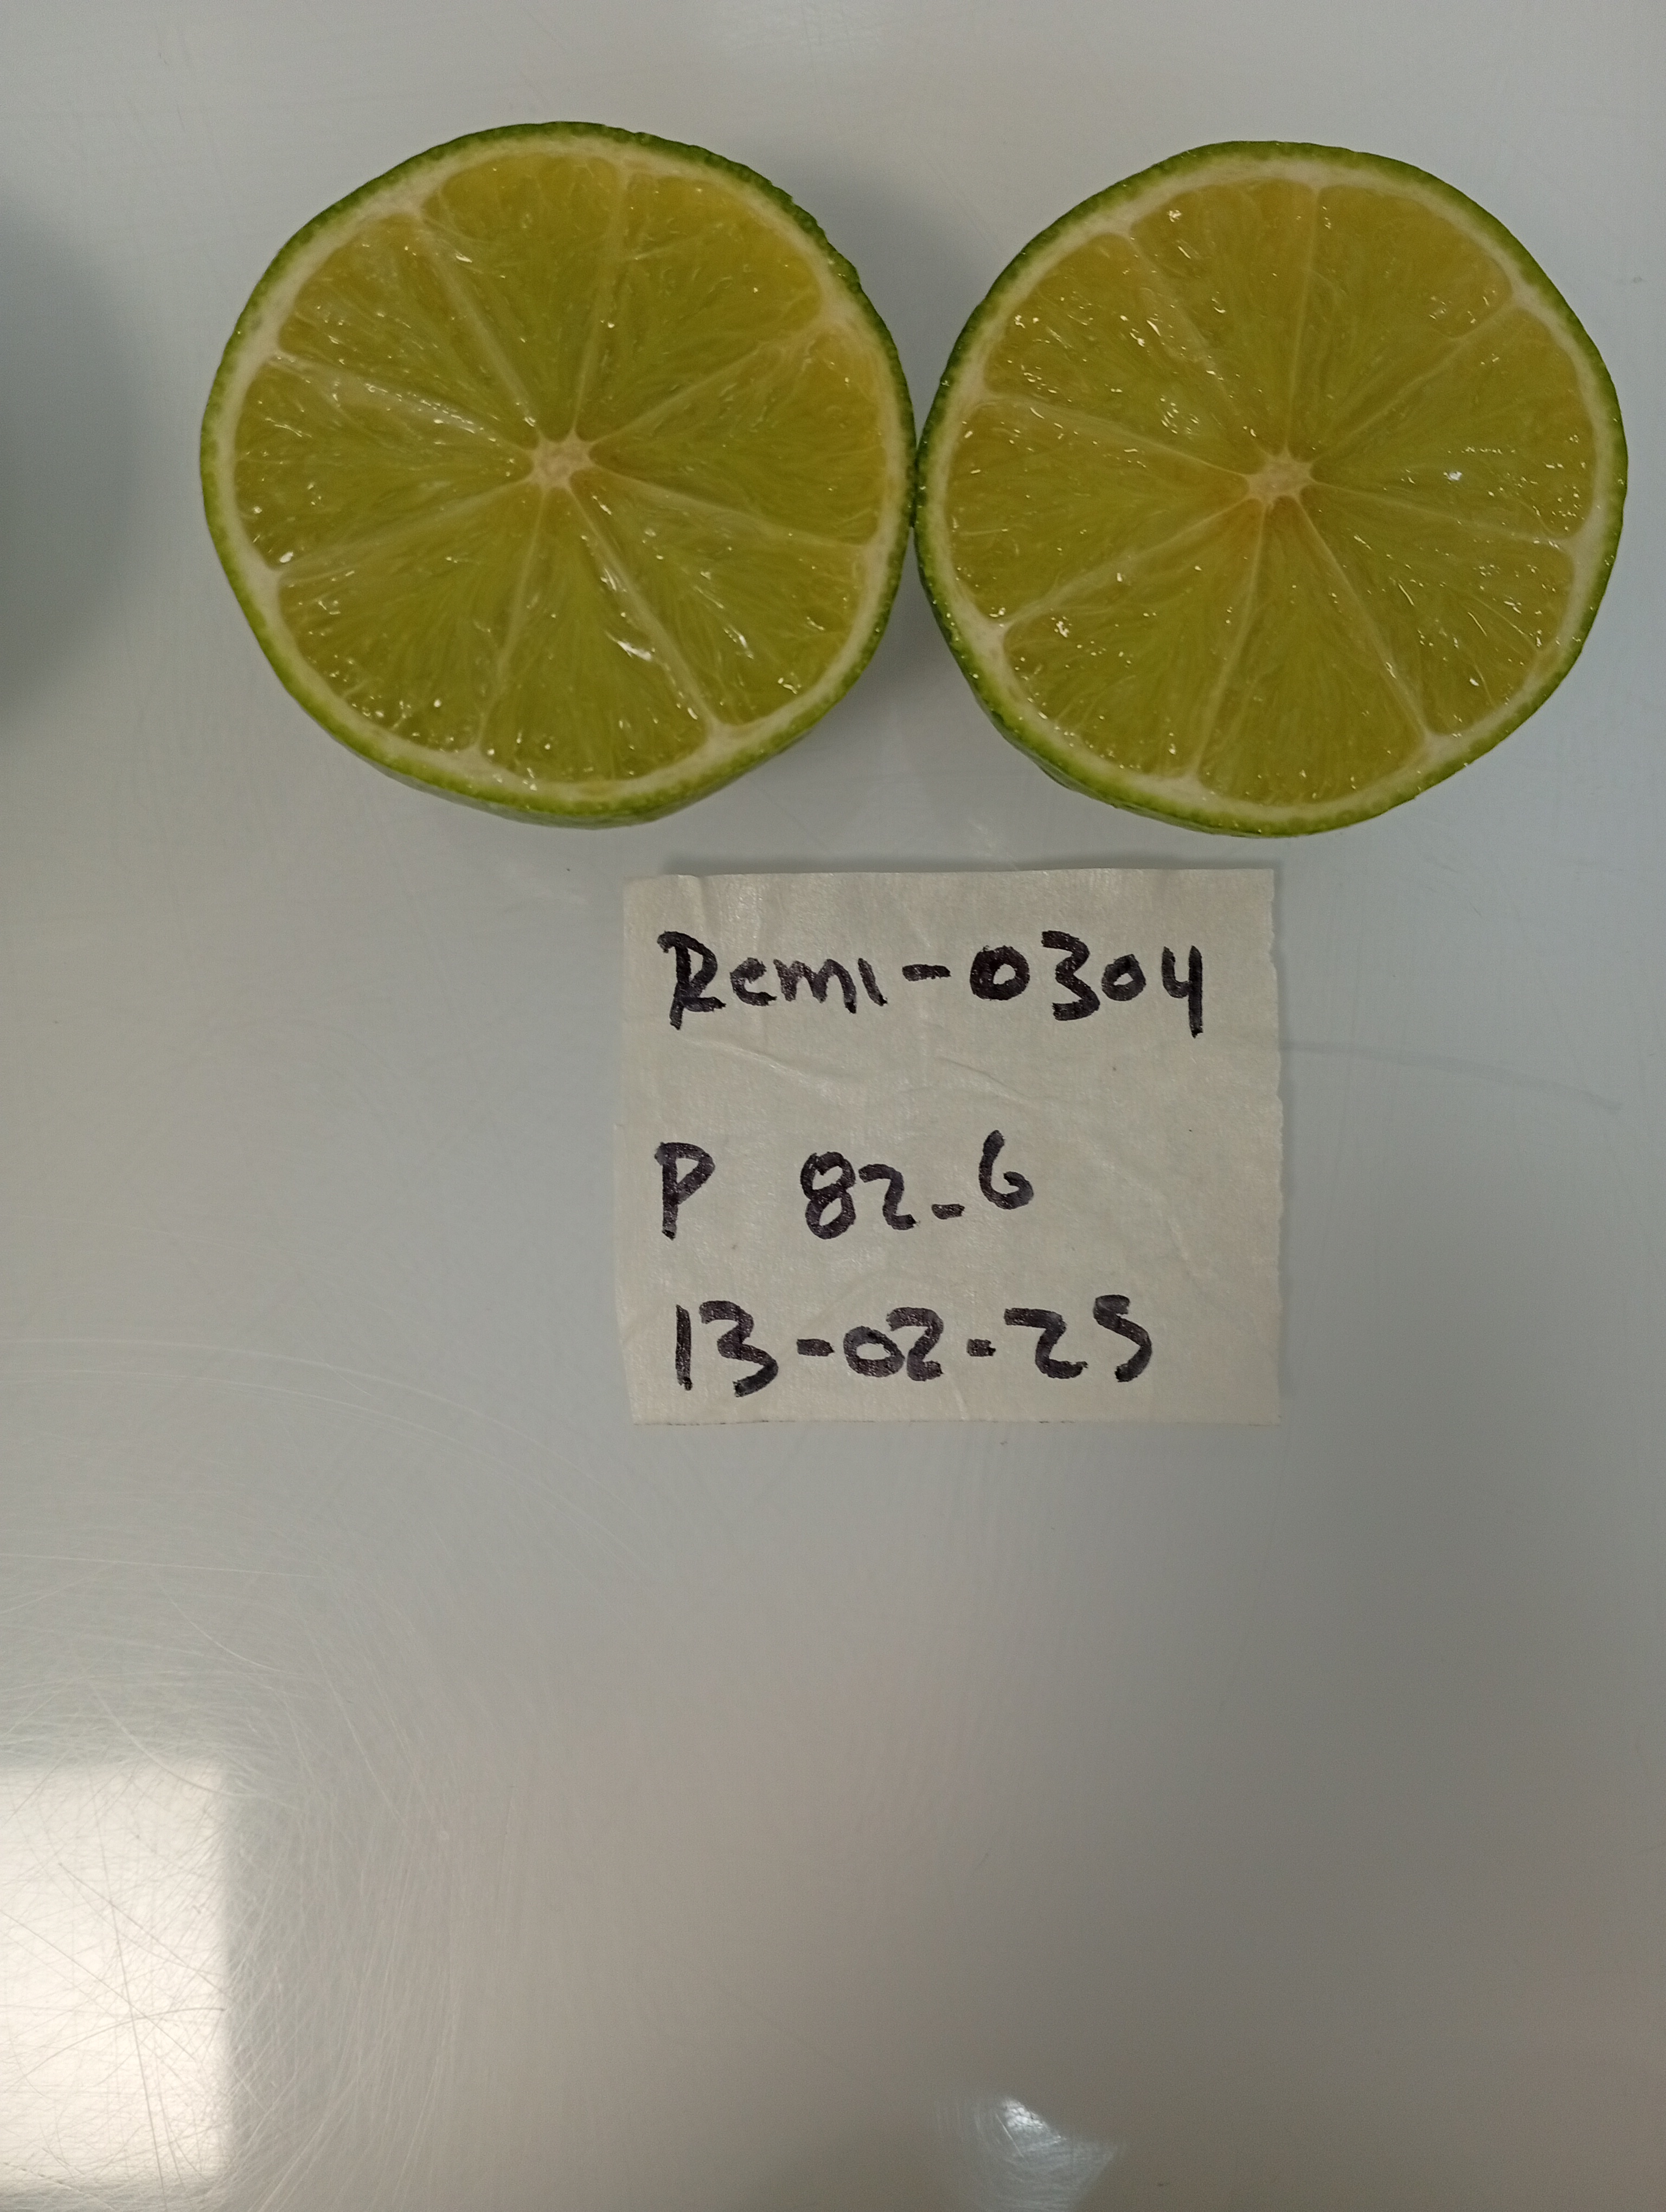 Remi-0304
P 82-6
13-02-25